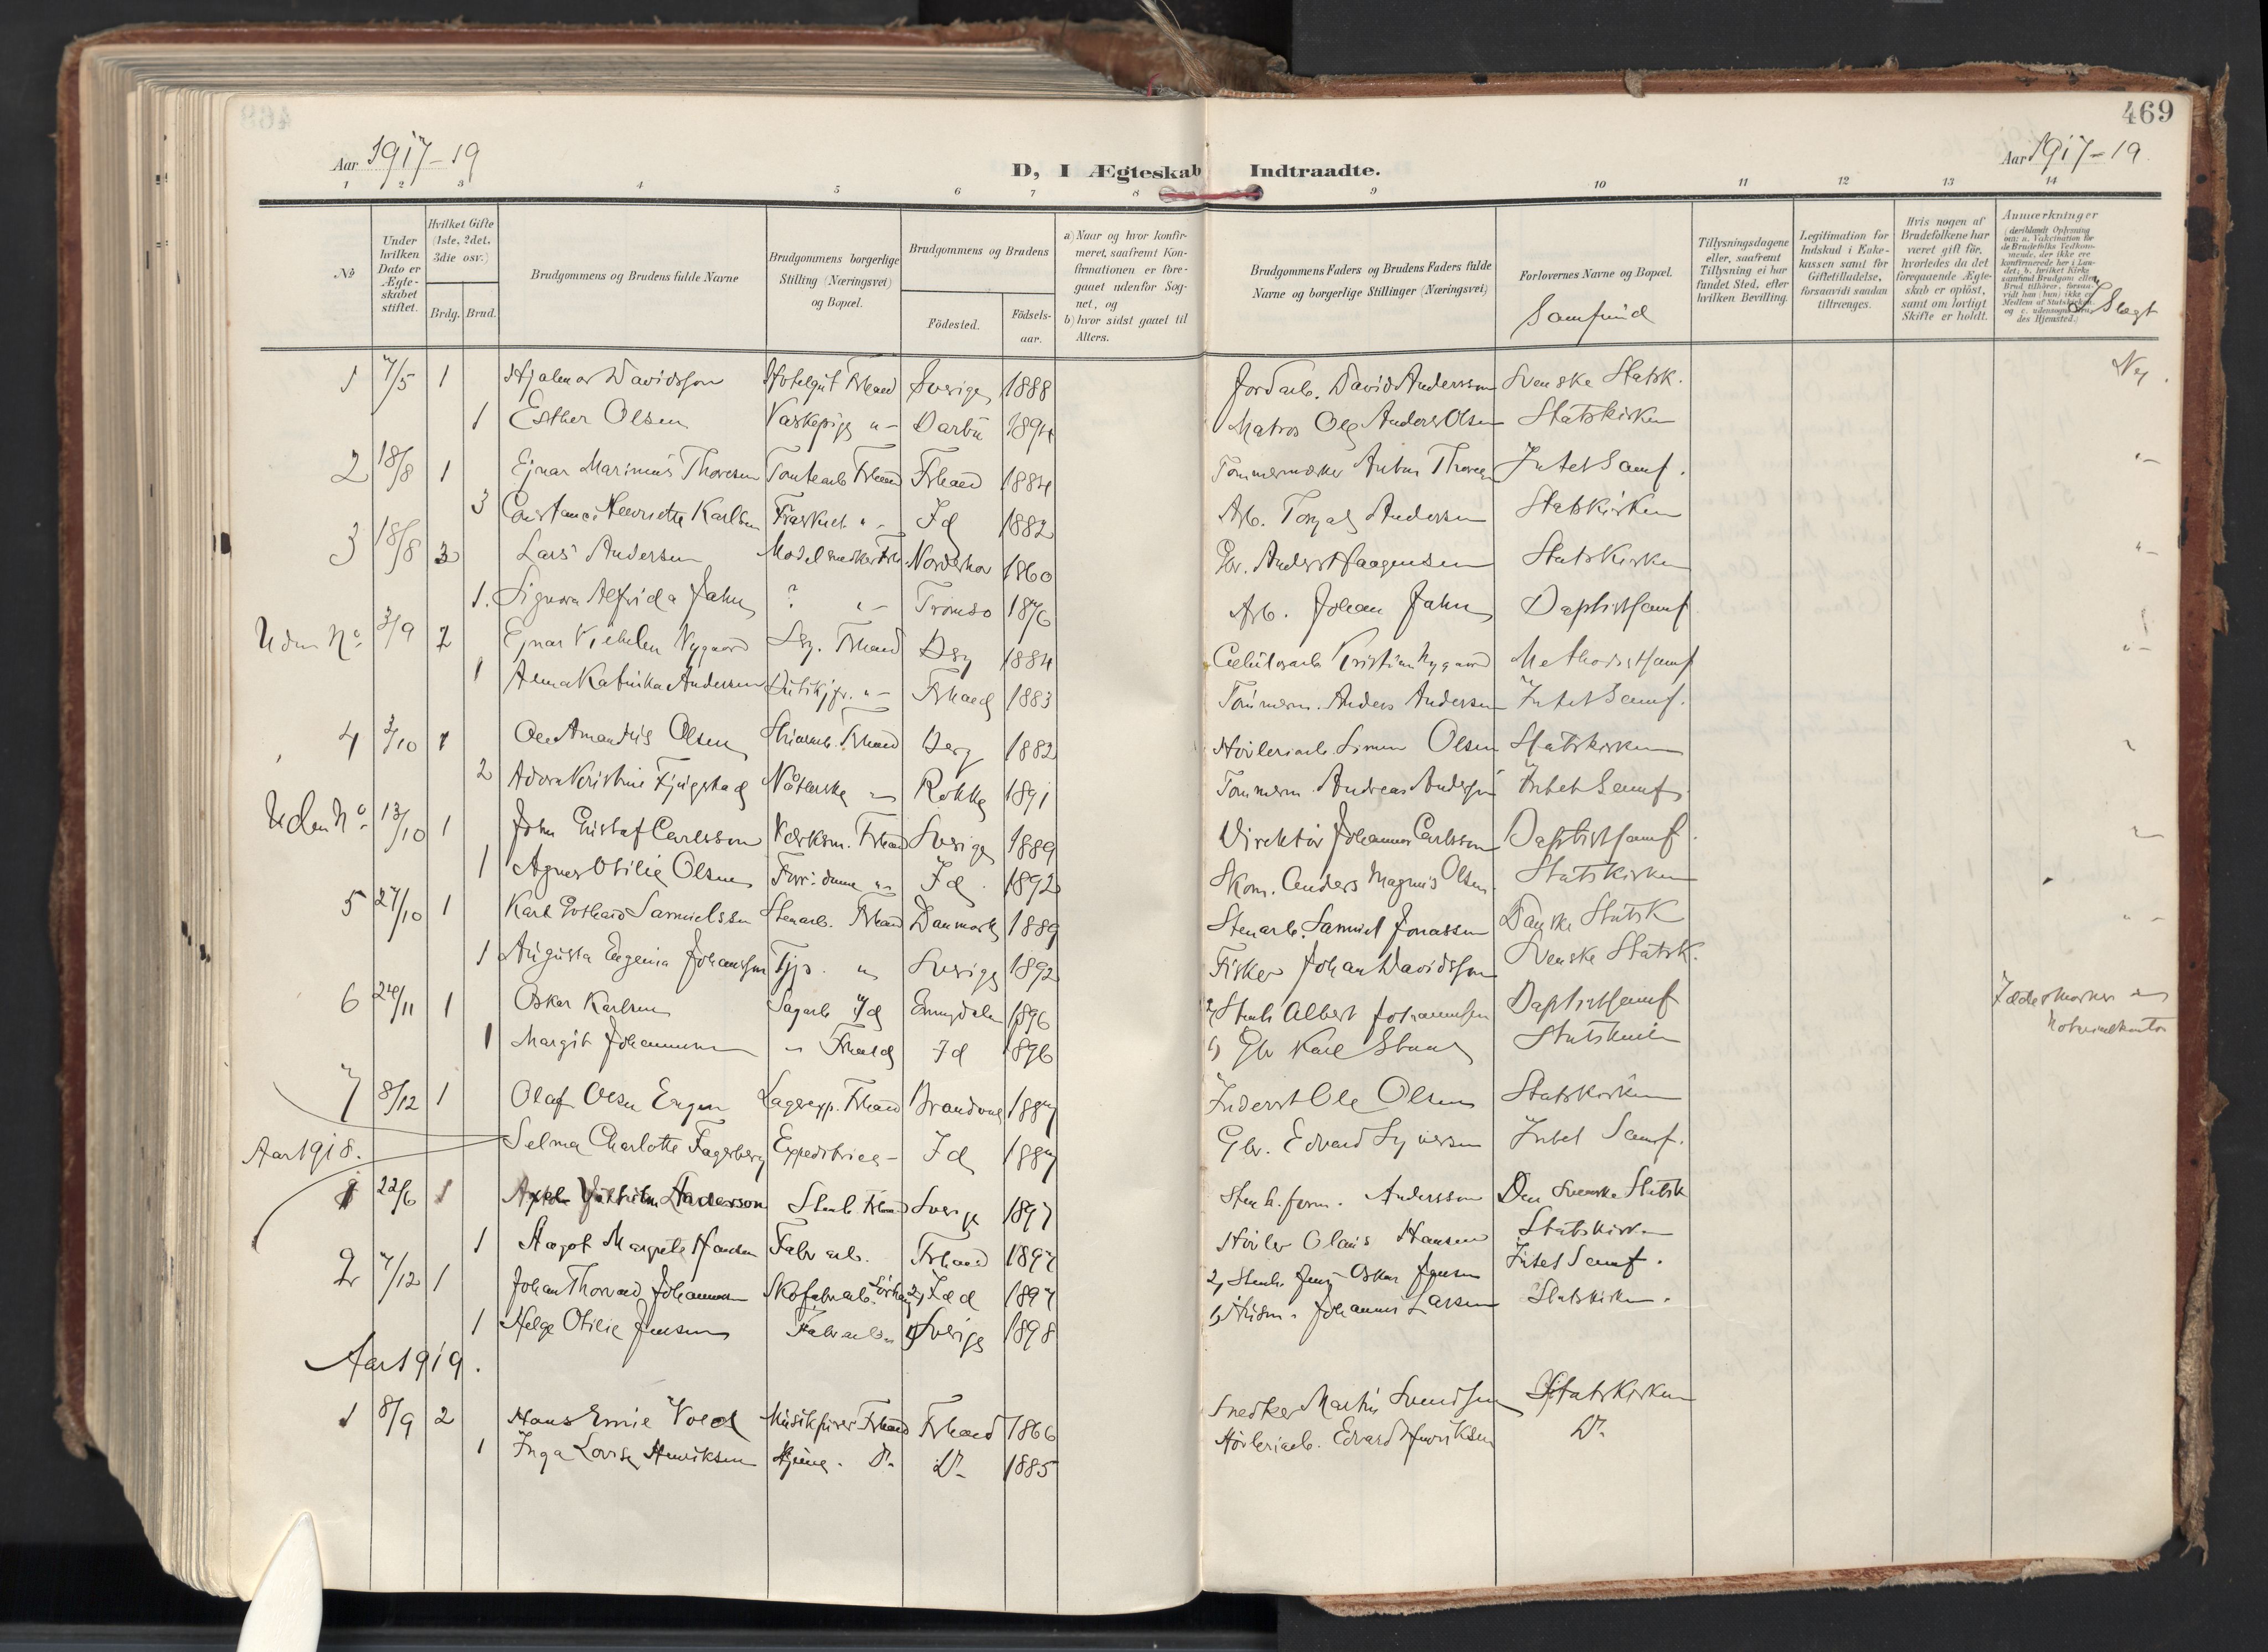 469
Aar 1917-19
D, I Ægteskab Indtraadte.
Aar 1917-19
1 2 3 4 5 6 7 8 9 10 11 12 13 14
No
Under hvilken Dato er Ægteskabet stiftet.
Hvilket Gifte (1ste, 2det, 3die osv.)
Brdg. Brud.
Brudgommens og Brudens fulde Navne
Brudgommens borgerlige Stilling (Næringsvei) og Bopæl.
Brudgommens og Brudens
Fødested. Fødselsaar.
a) Naar og hvor konfirmeret, saafremt Konfirmationen er foregaaet udenfor Sognet, og
b) hvor sidst gaaet til Alters.
Brudgommens Faders og Brudens Faders fulde Navne og borgerlige Stillinger (Næringsvei)
Forlovernes Navne og Bopæl.
Samfund
Tillysningsdagene eller, saafremt Tillysning ei har fundet Sted, efter hvilken Bevilling.
Legitimation for Indskud i Enkekassen samt for Giftetilladelse, forsaavidt saadan tiltrænges.
Hvis nogen af Brudefolkene har været gift før, hvorledes da det foregaaende Ægteskab er opløst, samt om lovligt Skifte er holdt.
Anmærkninger (deriblandt Oplysning om: a. Vakcination for de Brudefolks Vedkommende, der ikke ere konfirmerede her i Landet; b. hvilket Kirkesamfund Brudgom eller Brud tilhører, forsaavidt han (hun) ikke er Medlem af Statskirken, og c. udensogns Bruds Hjemsted.)
Slegt
1 7/5 1 Hjalmar Davidsson Hotelgut Frhald Sverige 1888 Jordarb. David Andersson Svenske Statsk. Nej.
1 Esther Olsen Vaskepige "- Darbu 1894 Matros Ole Anders Olsen Statskirken
2 18/8 1 Ejnar Marinius Thoresen Tomtearb Frhald Frhald 1884 Tømmermær Anton Thoresen Intet Samf. "-
3 Constance Henriette Karlsen "- Id 1882 Arb. Andersen Statskirken
3 18/8 3 Lars Andersen Modelsnedker Frh. Norderhov 1860 Gbr. Anders Haagensen Statskirken "-
1. Signora Alfrida Jahn ? "- Tromsø 1876 Arb. Johan Jahn Baptistsamf
Uden No. 3/9 2 Ejnar Vilhelm Nygaard Frhald Berg 1884 Kristian Nygaard Methodistsamf "-
1 Anna Katinka Andersen Butikjfr. "- Frhald 1883 Tømmerm. Anders Andersen Intet Samf.
4 3/10 1 Ole Amandus Olsen Frhald Berg 1882 Høvleriarb Simen Olsen Statskirken "
2 Kristine "- Rokke 1891 Tømmerm. Andreas Andersen Intet Samf.
Uden No. 13/10 1 John Gustaf Carlsson Værksm. Frhald Sverige 1889 Direktør Johannes Carlsson Baptistsamf. "-
1 Agnes Otilie Olsen "- Id. 1892 Skom. Anders Magnus Olsen Statskirken
5 27/10 1 Karl Gothard Samuelssen Stenarb. Frhald Danmark 1889 Stenarb. Samuel Jonassen Danske Statsk "-
1 Augusta Eugenia Johansson Tjp. "- Sverige 1892 Fisker Johan Davidsson Svenske Statsk.
6 24/11 1 Oskar Karlsen Sagarb Id Enningdalen 1896 2) Stenh Albert Johannesen Baptistsamf
1 Margit Johannesen "- Frhald Id 1896 1) Gbr Karl Statskirken
7 8/12 1 Olaf Olsen Lagerexp. Frhald Brandval 1887 Inderst Ole Olsen Statskirken
Selma Charlotte Fagerberg Expeditrice - Id 1887 Gbr. Edvard Syversen Intet Samf.
Aar 1918.
1 22/6 1 Axel Vilhelm Andersson Stenh. Frhald Sverige 1897 Stenh. form. Andersson Den Svenske Statsk
1 Aagot Margrete Hansen Fabr arb. Frhald 1897 Høvler Olaus Hansen Statskirken
2 7/12 1 Johan Thorvald Johannesen Skofabrarb. 2) Id 1897 2) Stenh. Oskar Jensen Intet Samf.
1 Helga Otilie Jensen Fabr arb. 1) Sverige 1898 1) Husm. Johannes Larsen Statskirken.
Aar 1919.
1 8/9 2 Hans Emil Vold Musikfører Frhald Frhald 1866 Snedker Martin Svendsen Statskirken
1 Inga Lovise Henriksen Hjemme. D. D. 1885 Høvleriarb. Edvard Henriksen D.